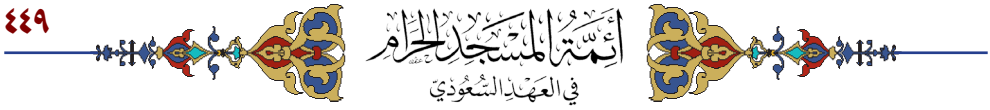 ٤٤٩
أَئِمَّةُ المَسْجِدِ الحَرَامِ
فِي العَهْدِ السُّعُودِيّ